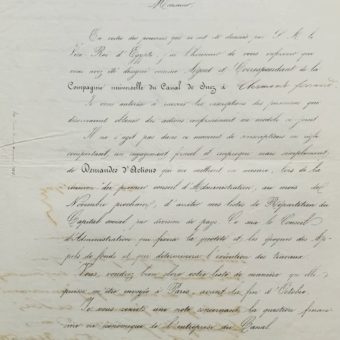 Monsieur,
En vertu des pouvoirs qui m'ont été donnés par S. A. le
Vice Roi d'Égypte, j'ai l'honneur de vous informer que
vous avez été désigné comme Agent et Correspondant de la
Compagnie universelle du Canal de Suez à Clermont ferrand
Je vous autorise à recevoir les souscriptions des personnes qui
désireraient obtenir des actions conformément au modèle ci joint
Il ne s'agit pas dans ce moment de souscriptions en règle
comportant un engagement formel et réciproque mais simplement
de Demandes d'Actions qui me mettront en mesure, lors de la
réunion du premier conseil d'Administration, au mois de
Novembre prochain, d'arrêter mes listes de Répartition du
Capital social, par division de pays. Ce sera le Conseil
d'Administration qui fixera la quotité et les époques des Ap-
pels de fonds et qui déterminera l'exécution des travaux
Vous voudrez bien clore votre liste de manière qu'elle
puisse être envoyée à Paris, avant la fin d'Octobre
Je vous remets une note concernant la question finan-
cière ou économique de l'entreprise du Canal